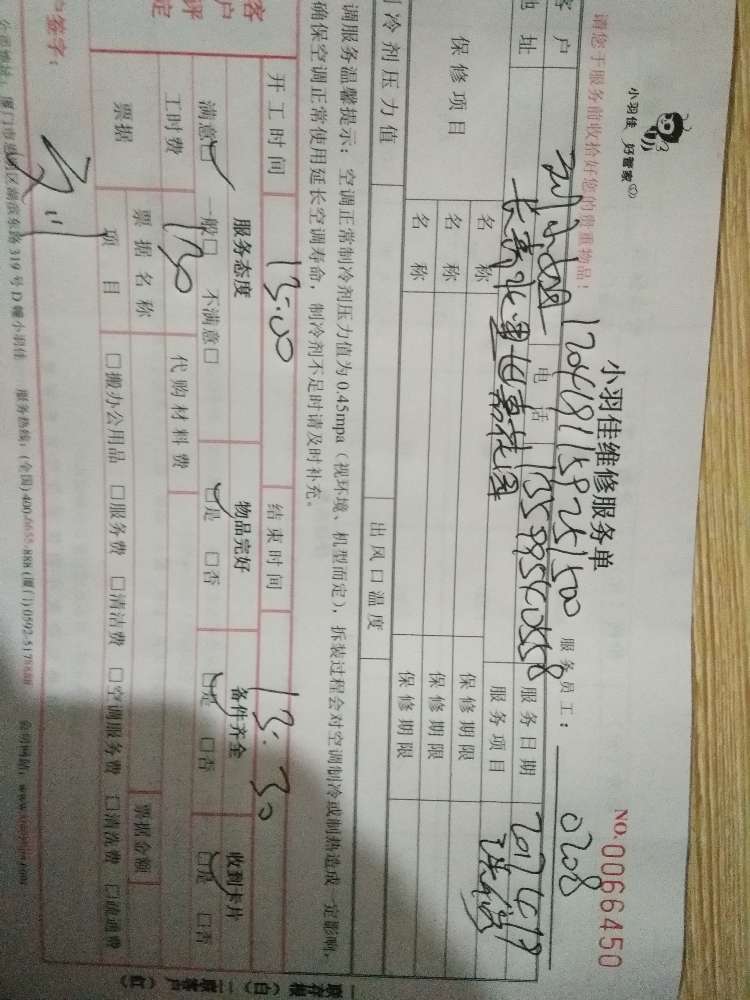 小羽佳 好管家
小羽佳维修服务单
NO.0066450
请您于服务前收拾好您的贵重物品!
1204181159251500
服务员工: 0208
客户
电话 13559540558
服务日期 2017.4.19
地址
服务项目
保修项目
名称 保修期限
名称 保修期限
名称 保修期限
制冷剂压力值 出风口温度
调服务温馨提示: 空调正常制冷剂压力值为0.45mpa (视环境、机型而定), 拆装过程会对空调制冷或制热造成一定影响,
确保空调正常使用延长空调寿命, 制冷剂不足时请及时补充。
开工时间 13:00 结束时间 13:30
服务态度 物品完好 备件齐全 收到卡片
满意□ 一般□ 不满意□ □是 □否 □是 □否 □是 □否
工时费 130 代购材料费
票据 票据名称 票据金额
项目 □搬办公用品 □服务费 □清洁费 □空调服务费 □清洗费 □疏通费
签字:
319号D幢小羽佳 服务热线: (全国) 400-6655-888 (厦门) 0592-5178888
一联存根 (白) 二联客户 (红)